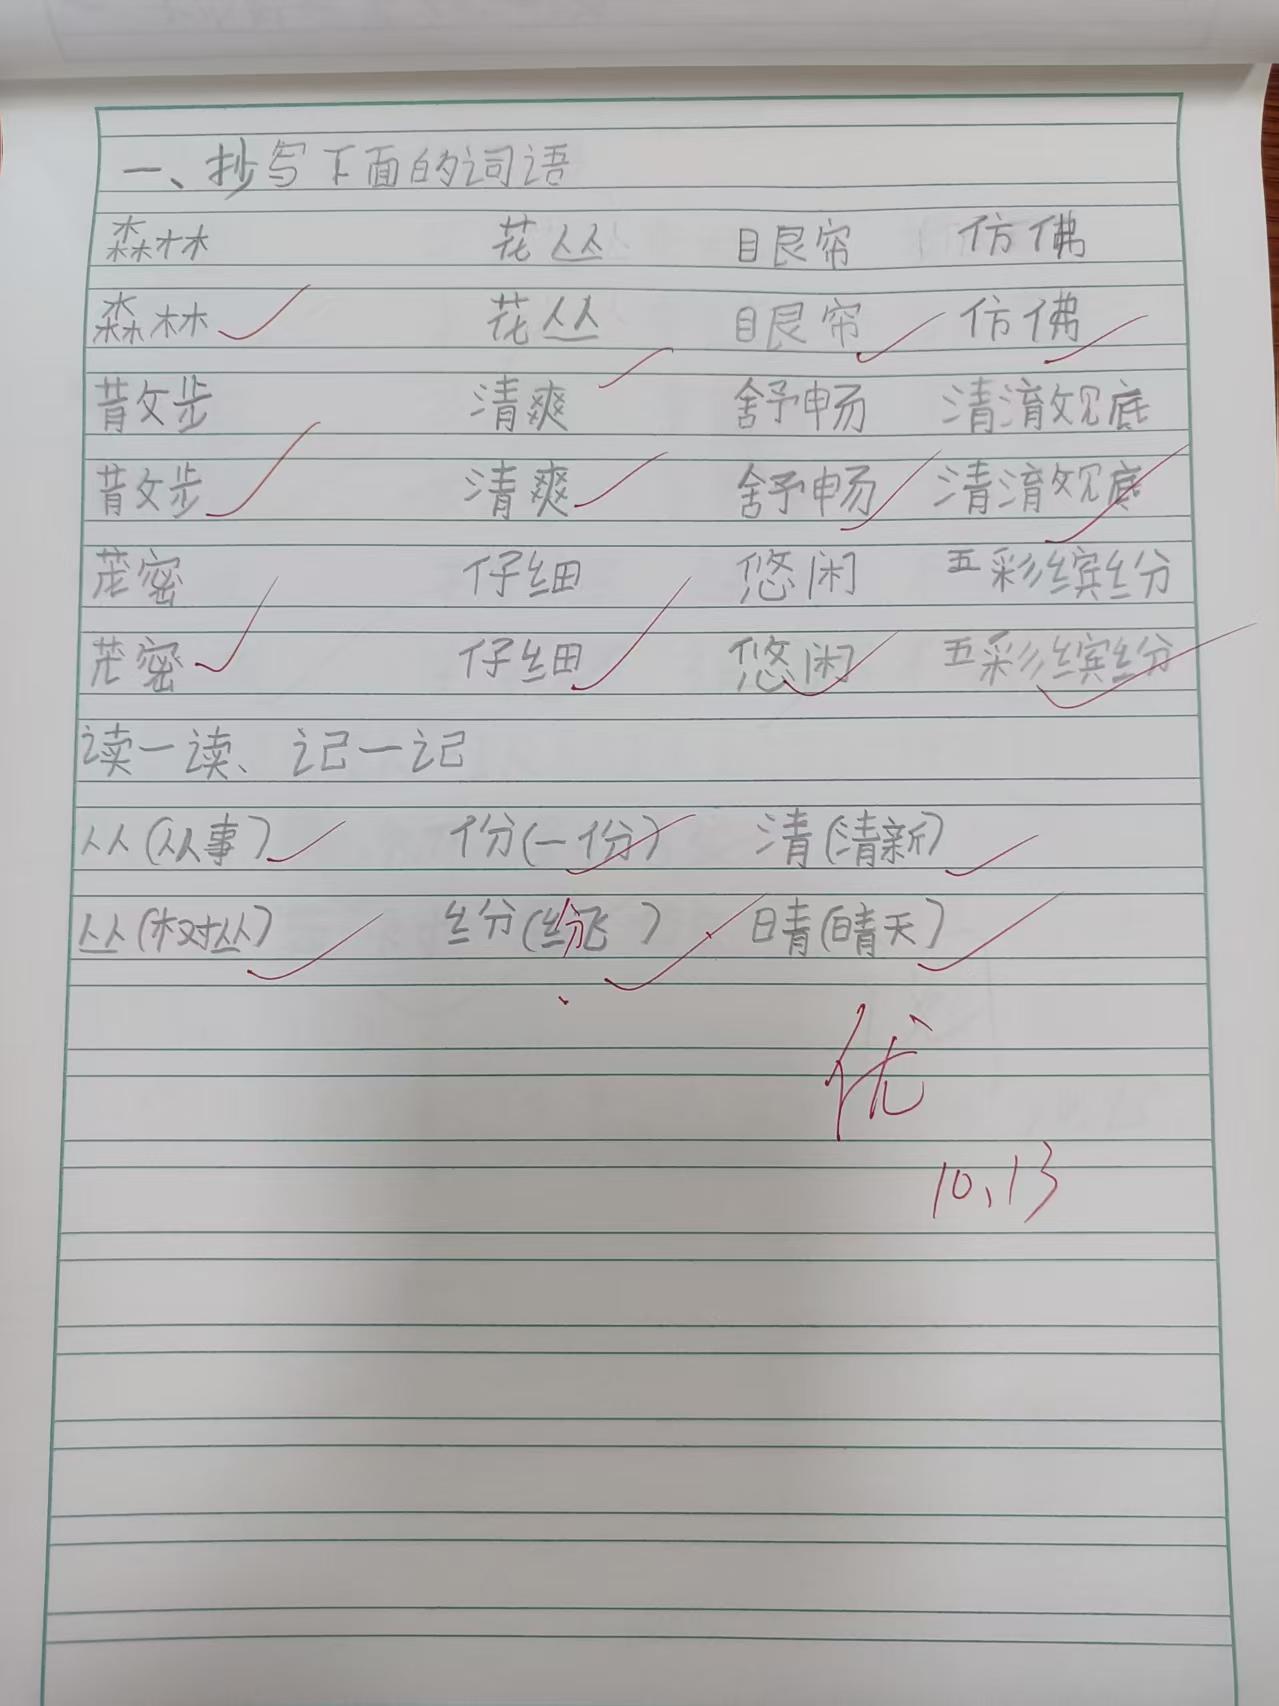 一、抄写下面的词语
森林 花丛 眼帘 仿佛
森林 花丛 眼帘 仿佛
散步 清爽 舒畅 清澈见底
散步 清爽 舒畅 清澈见底
茂密 仔细 悠闲 五彩缤纷
茂密 仔细 悠闲 五彩缤纷
读一读、记一记
从(从事) 份(一份) 清(清新)
丛(树丛) 纷(纷飞) 晴(晴天)
优
10、13